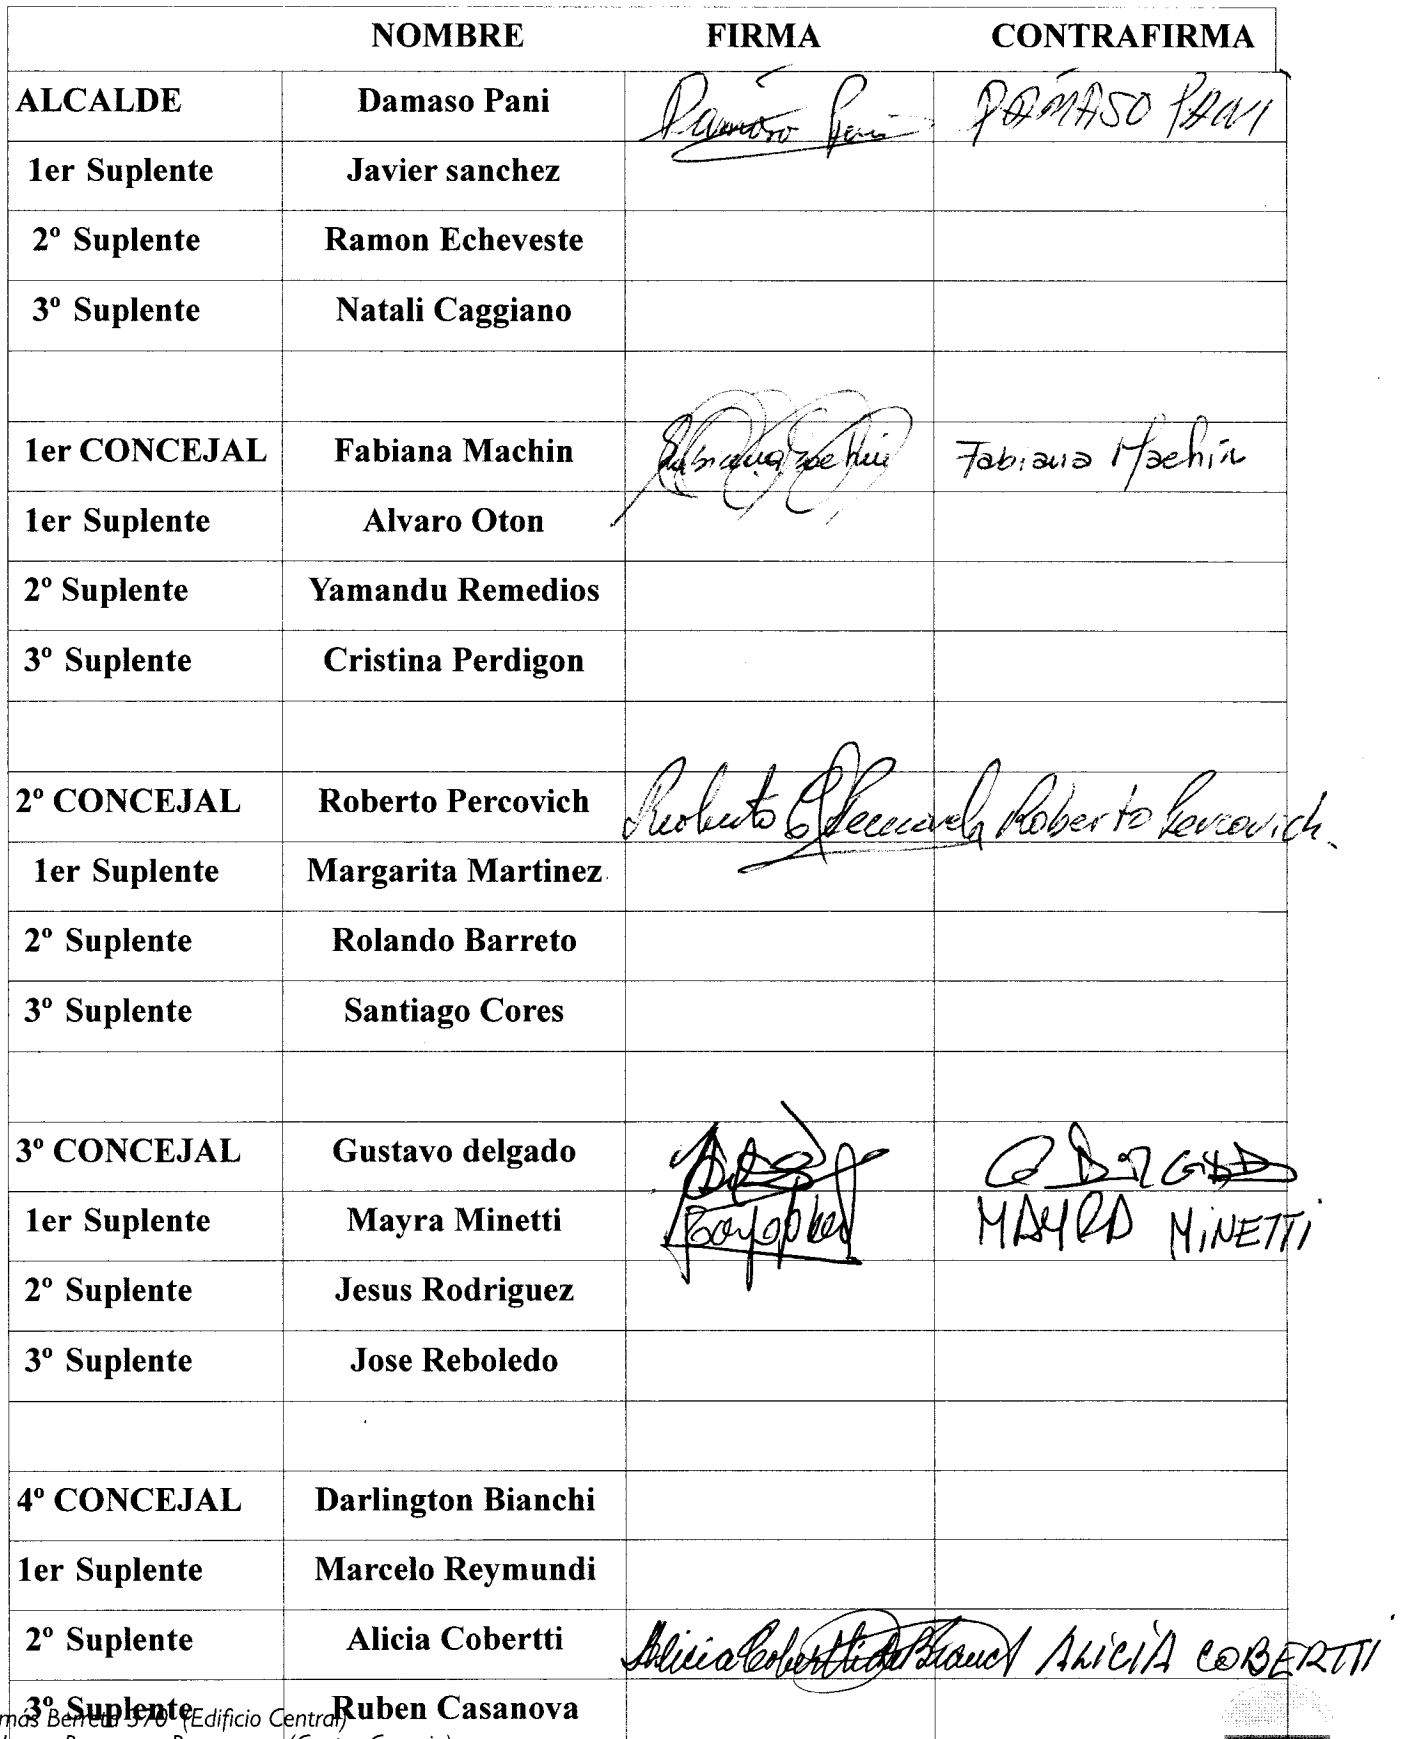 NOMBRE FIRMA CONTRAFIRMA
ALCALDE Damaso Pani Damaso Pani DAMASO PANI
1er Suplente Javier sanchez
2º Suplente Ramon Echeveste
3º Suplente Natali Caggiano
1er CONCEJAL Fabiana Machin Fabiana Machin Fabiana Machín
1er Suplente Alvaro Oton
2º Suplente Yamandu Remedios
3º Suplente Cristina Perdigon
2º CONCEJAL Roberto Percovich Roberto Roberto Percovich.
1er Suplente Margarita Martinez
2º Suplente Rolando Barreto
3º Suplente Santiago Cores
3º CONCEJAL Gustavo delgado
1er Suplente Mayra Minetti MAYRA MiNETTi
2º Suplente Jesus Rodriguez
3º Suplente Jose Reboledo
4º CONCEJAL Darlington Bianchi
1er Suplente Marcelo Reymundi
2º Suplente Alicia Cobertti Alicia Cobertti de Bianchi ALiCiA COBERTTI
3º Suplente Ruben Casanova
más Berreta 370 (Edificio Central)